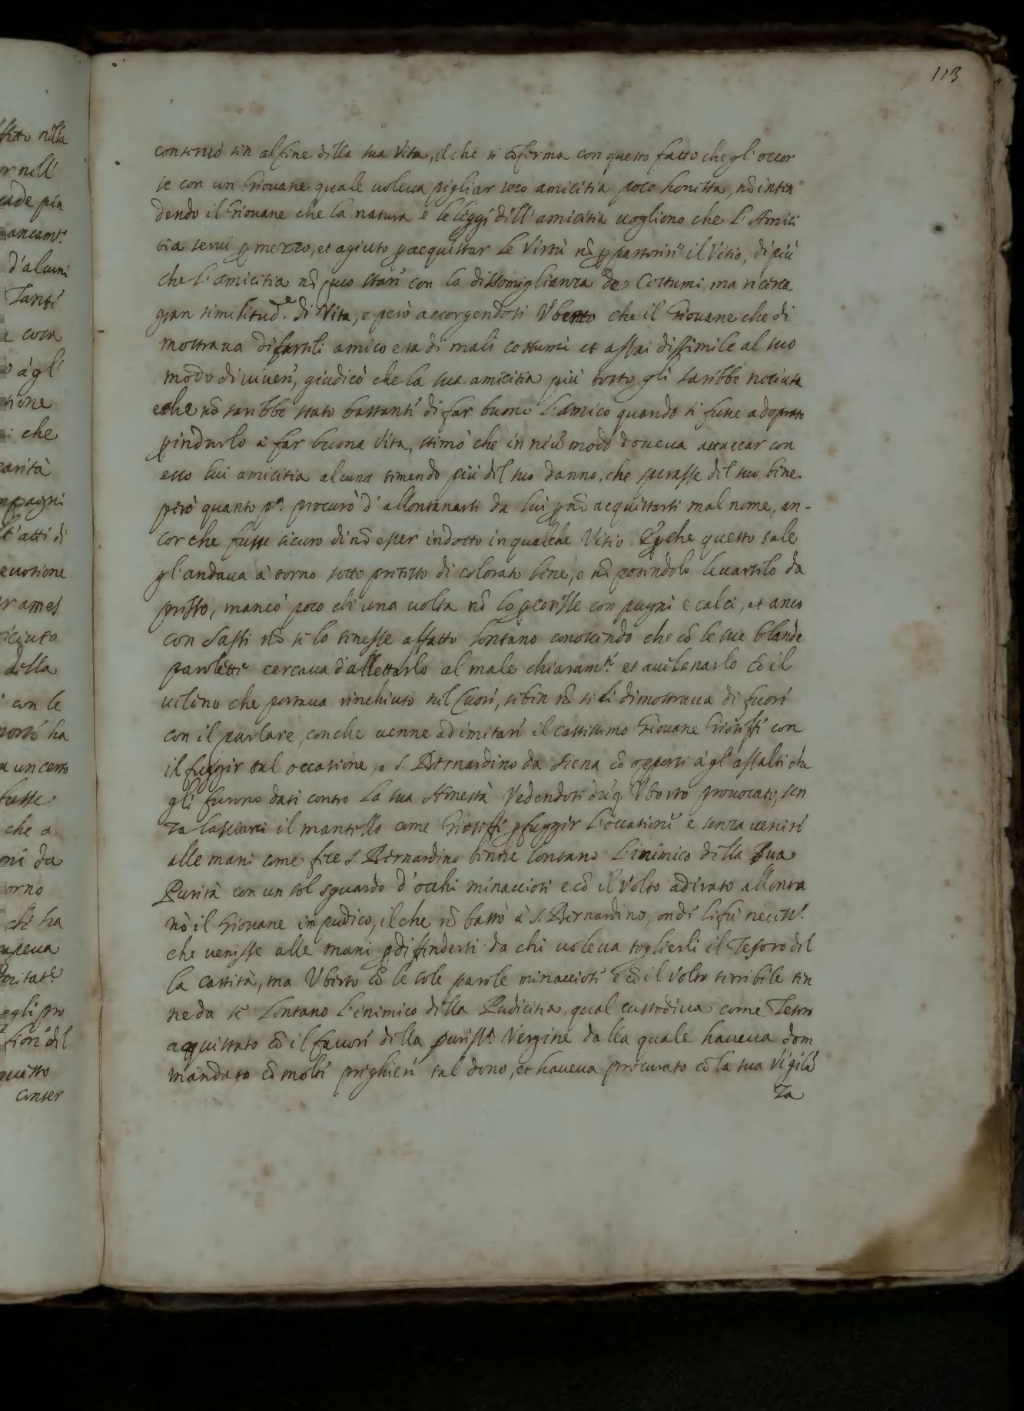 113
conseruò sin al fine della sua Vita, il che si cõferma con questo fatto che gl'occor
se con un Giouane quale uoleua pigliar seco amicitia poco honesta, nõ inten
dendo il Giouane che la natura e le leggi dell'amicitia uogliono che l'Amici
tia serui ꝑ mezzo, et agiuto ꝑ acquistar le Virtù nõ ꝑ partorire il Vitio, di più
che l'amicitia nõ può stare con la dissomiglianza de Costumi, ma ricerca
gran similitud.e di Vita, e però accorgendosi Vberto che il Giouane che di
mostraua di farseli amico era di mali costumi et assai dissimile al suo
modo di uiuere, giudicò che la sua amicitia più tosto gli sarebbe nociuta
e che nõ sarebbe stato bastante di far buono l'amico quando si fusse adoprato
ꝑ indurlo à far buona Vita, stimò che in niũ modo doueua attaccar con
esso lui amicitia alcuna temendo più del suo danno, che sperasse del suo bene.
però quanto p.a procurò d'allontanarsi da lui ꝑ nõ acquistarsi mal nome, an-
cor che fusse sicuro di nõ esser indotto in qualche Vitio. Et ꝑche questo tale
gl'andaua à torno sotto pretesto di colorato bene, e nõ potendolo leuarselo da
presso, mancò poco che una uolta nõ lo ꝑcotesse con pugni e calci, et anco
con Sassi nõ se lo tenesse affatto lontano conoscendo che cõ le sue blande
parolette cercaua d'allettarlo al male chiaram.te et auuelenarlo cõ il
ueleno che portaua rinchiuso nel Cuore, se ben nõ si li dimostraua di fuori
con il parlare, con che uenne ad imitare il castissimo Giouane Gioseffe con
il fuggir tal occasione, e S. Bernardino da Siena cõ opporsi à gl'assalti che
gli furono dati contro la sua Honestà. Vedendosi dũq. Vberto prouocato, sen
za lasciarci il mantello come Gioseffe ꝑ fuggir l'occatione e senza uenire
alle mani come fece S. Bernardino tenne lontano l'inimico della Sua
Purità con un sol sguardo d'occhi minacciosi e cõ il Volto adirato allonta
nò il Giouane impudico, il che nõ bastò à S. Bernardino, onde li fù necess.o
che uenisse alle mani ꝑ diffendersi da chi uoleua toglierli il Tesoro del
la castità, ma Vberto cõ le sole parole minacciose e cõ il Volto terribile ten
ne da se lontano l'inimico della Pudicitia, qual custodiua come Tesoro
acquistato cõ il fauore della puriss.a Vergine dalla quale haueua dom
mandato cõ molte preghiere tal dono, et haueua procurato cõ la sua Vigilã
za